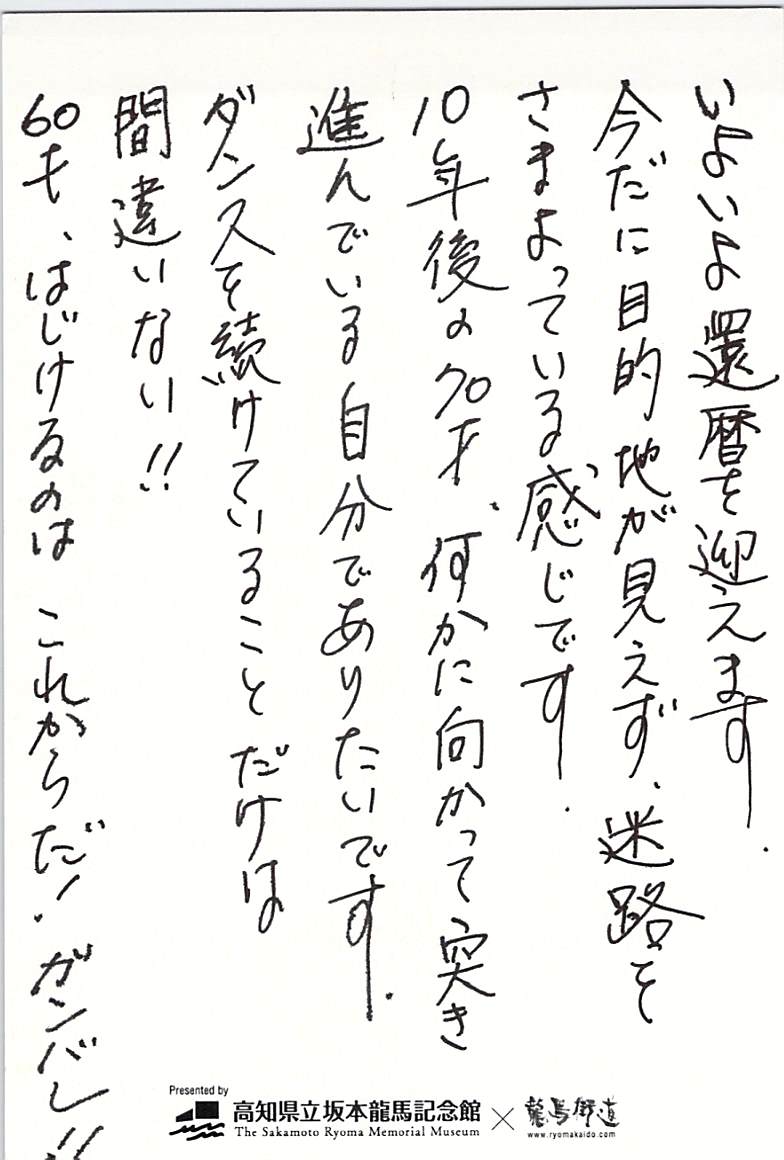 いよいよ還暦を迎えます.
今だに目的地が見えず、迷路を
さまよっている感じです.
10年後の70才、何かに向かって突き
進んでいる自分でありたいです.
ダンスを続けていることだけは
間違いない!!
60才、はじけるのは これからだ! ガンバレ!!
Presented by
高知県立坂本龍馬記念館
The Sakamoto Ryoma Memorial Museum
×
龍馬街道
www.ryomakaido.com